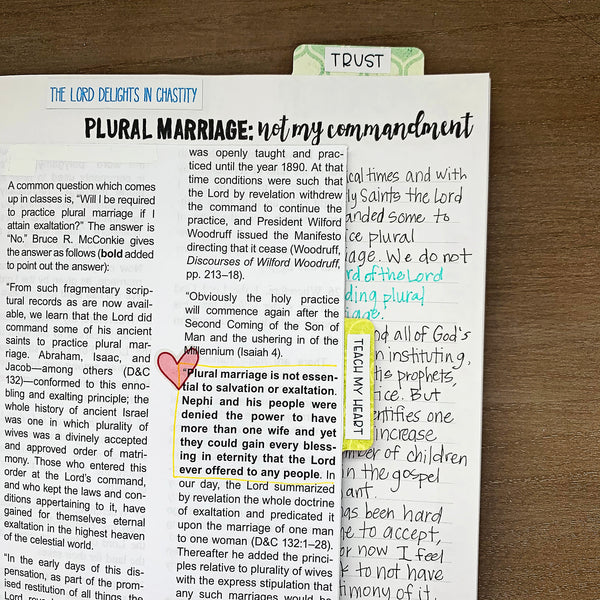 TRUST
THE LORD DELIGHTS IN CHASTITY
PLURAL MARRIAGE: not my commandment
A common question which comes
up in classes is, “Will I be required
to practice plural marriage if I
attain exaltation?” The answer is
“No.” Bruce R. McConkie gives
the answer as follows (bold added
to point out the answer):
“From such fragmentary scrip-
tural records as are now avail-
able, we learn that the Lord did
command some of his ancient
saints to practice plural mar-
riage. Abraham, Isaac, and
Jacob—among others (D&C
132)—conformed to this enno-
bling and exalting principle; the
whole history of ancient Israel
was one in which plurality of
wives was a divinely accepted
and approved order of matri-
mony. Those who entered this
order at the Lord’s command,
and who kept the laws and con-
ditions appertaining to it, have
gained for themselves eternal
exaltation in the highest heaven
of the celestial world.
“In the early days of this dis-
pensation, as part of the prom-
ised restitution of all things, the
was openly taught and prac-
ticed until the year 1890. At that
time conditions were such that
the Lord by revelation withdrew
the command to continue the
practice, and President Wilford
Woodruff issued the Manifesto
directing that it cease (Woodruff,
Discourses of Wilford Woodruff,
pp. 213–18).
“Obviously the holy practice
will commence again after the
Second Coming of the Son of
Man and the ushering in of the
Millennium (Isaiah 4).
“Plural marriage is not essen-
tial to salvation or exaltation.
Nephi and his people were
denied the power to have
more than one wife and yet
they could gain every bless-
ing in eternity that the Lord
ever offered to any people. In
our day, the Lord summarized
by revelation the whole doctrine
of exaltation and predicated it
upon the marriage of one man
to one woman (D&C 132:1–28).
Thereafter he added the princi-
ples relative to plurality of wives
with the express stipulation that
any such marriages would be
TEACH MY HEART
cal times and with
ly Saints the Lord
anded some to
ce plural
age. We do not
rd of the Lord
ding plural
iage.
nd all of God's
n instituting,
his prophets,
tice. But
entifies one
increase
mber of children
in the gospel
ant.
as been hard
me to accept,
or now I feel
k to not have
timony of it.